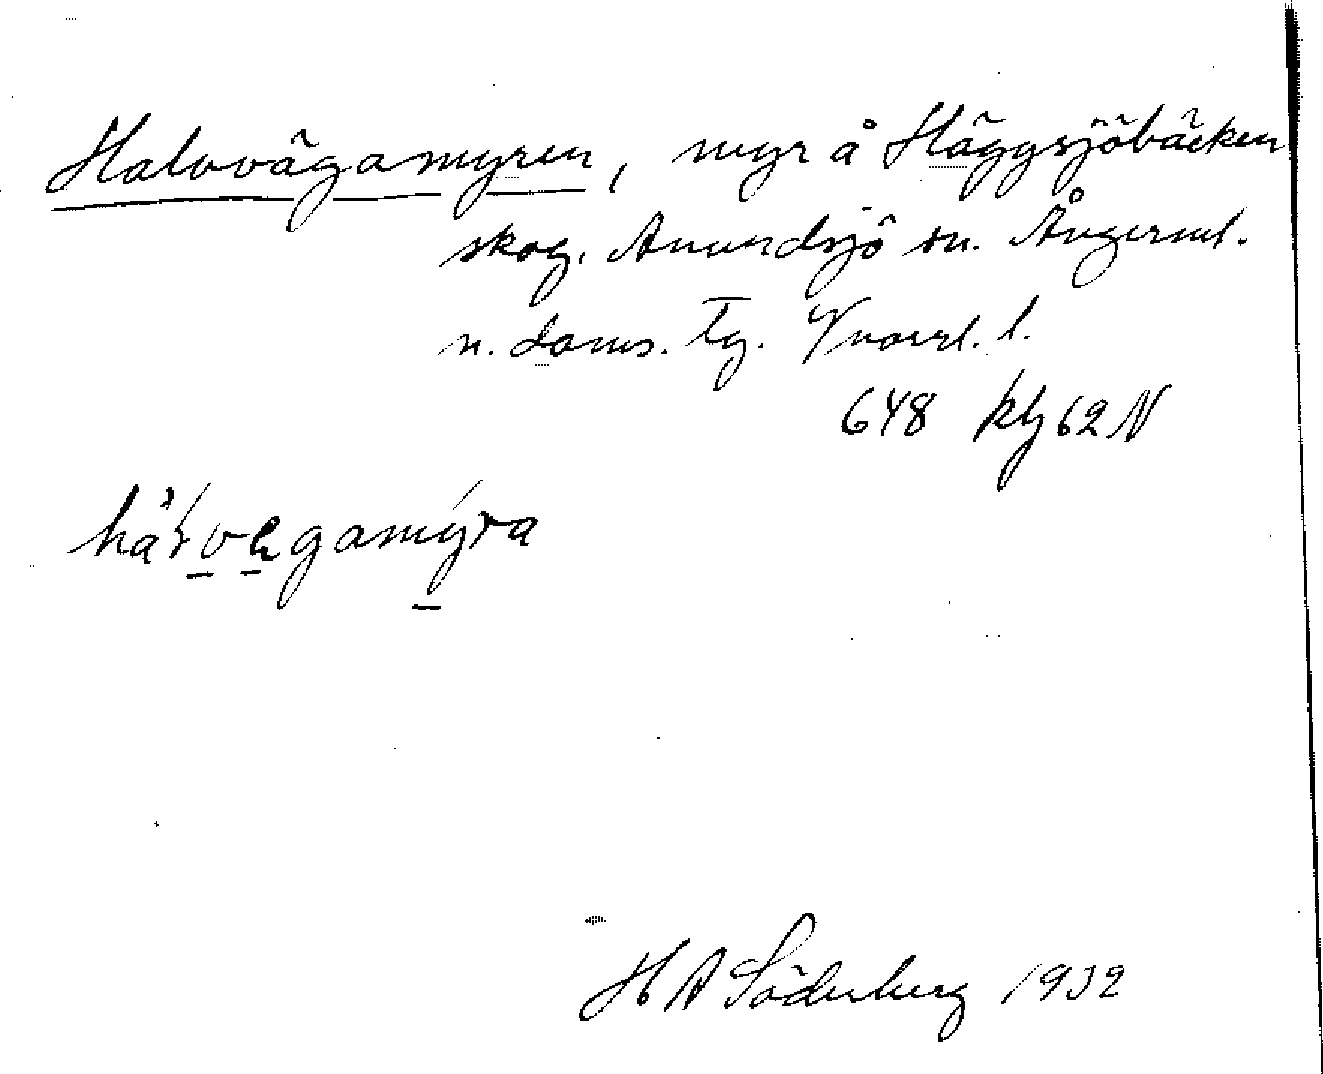 Halvvägamyren, myr å Häggsjöbäcken
skog. Anundsjö sn. Ångerml.
n. doms. Tg. Vnorrl. l.
648 klj 62 N
H A Söderberg 1932